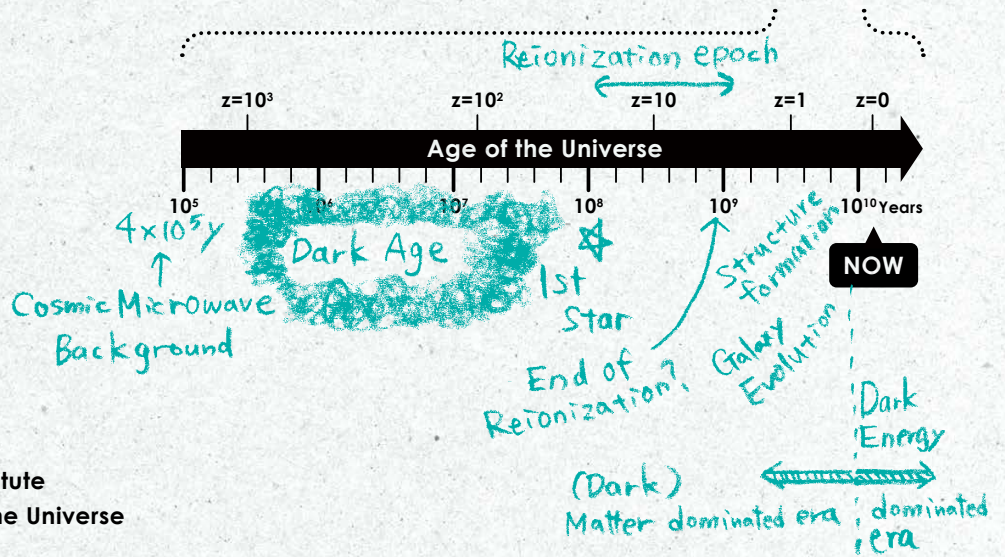 Reionization epoch
z=10³ z=10² z=10 z=1 z=0
Age of the Universe
10⁵ 10⁶ 10⁷ 10⁸ 10⁹ 10¹⁰ Years
NOW
4×10⁵y
Cosmic Microwave
Background
Dark Age
1st
Star
End of
Reionization?
Structure
formation
Galaxy
Evolution
Dark
Energy
dominated
era
(Dark)
Matter dominated era
tute
he Universe